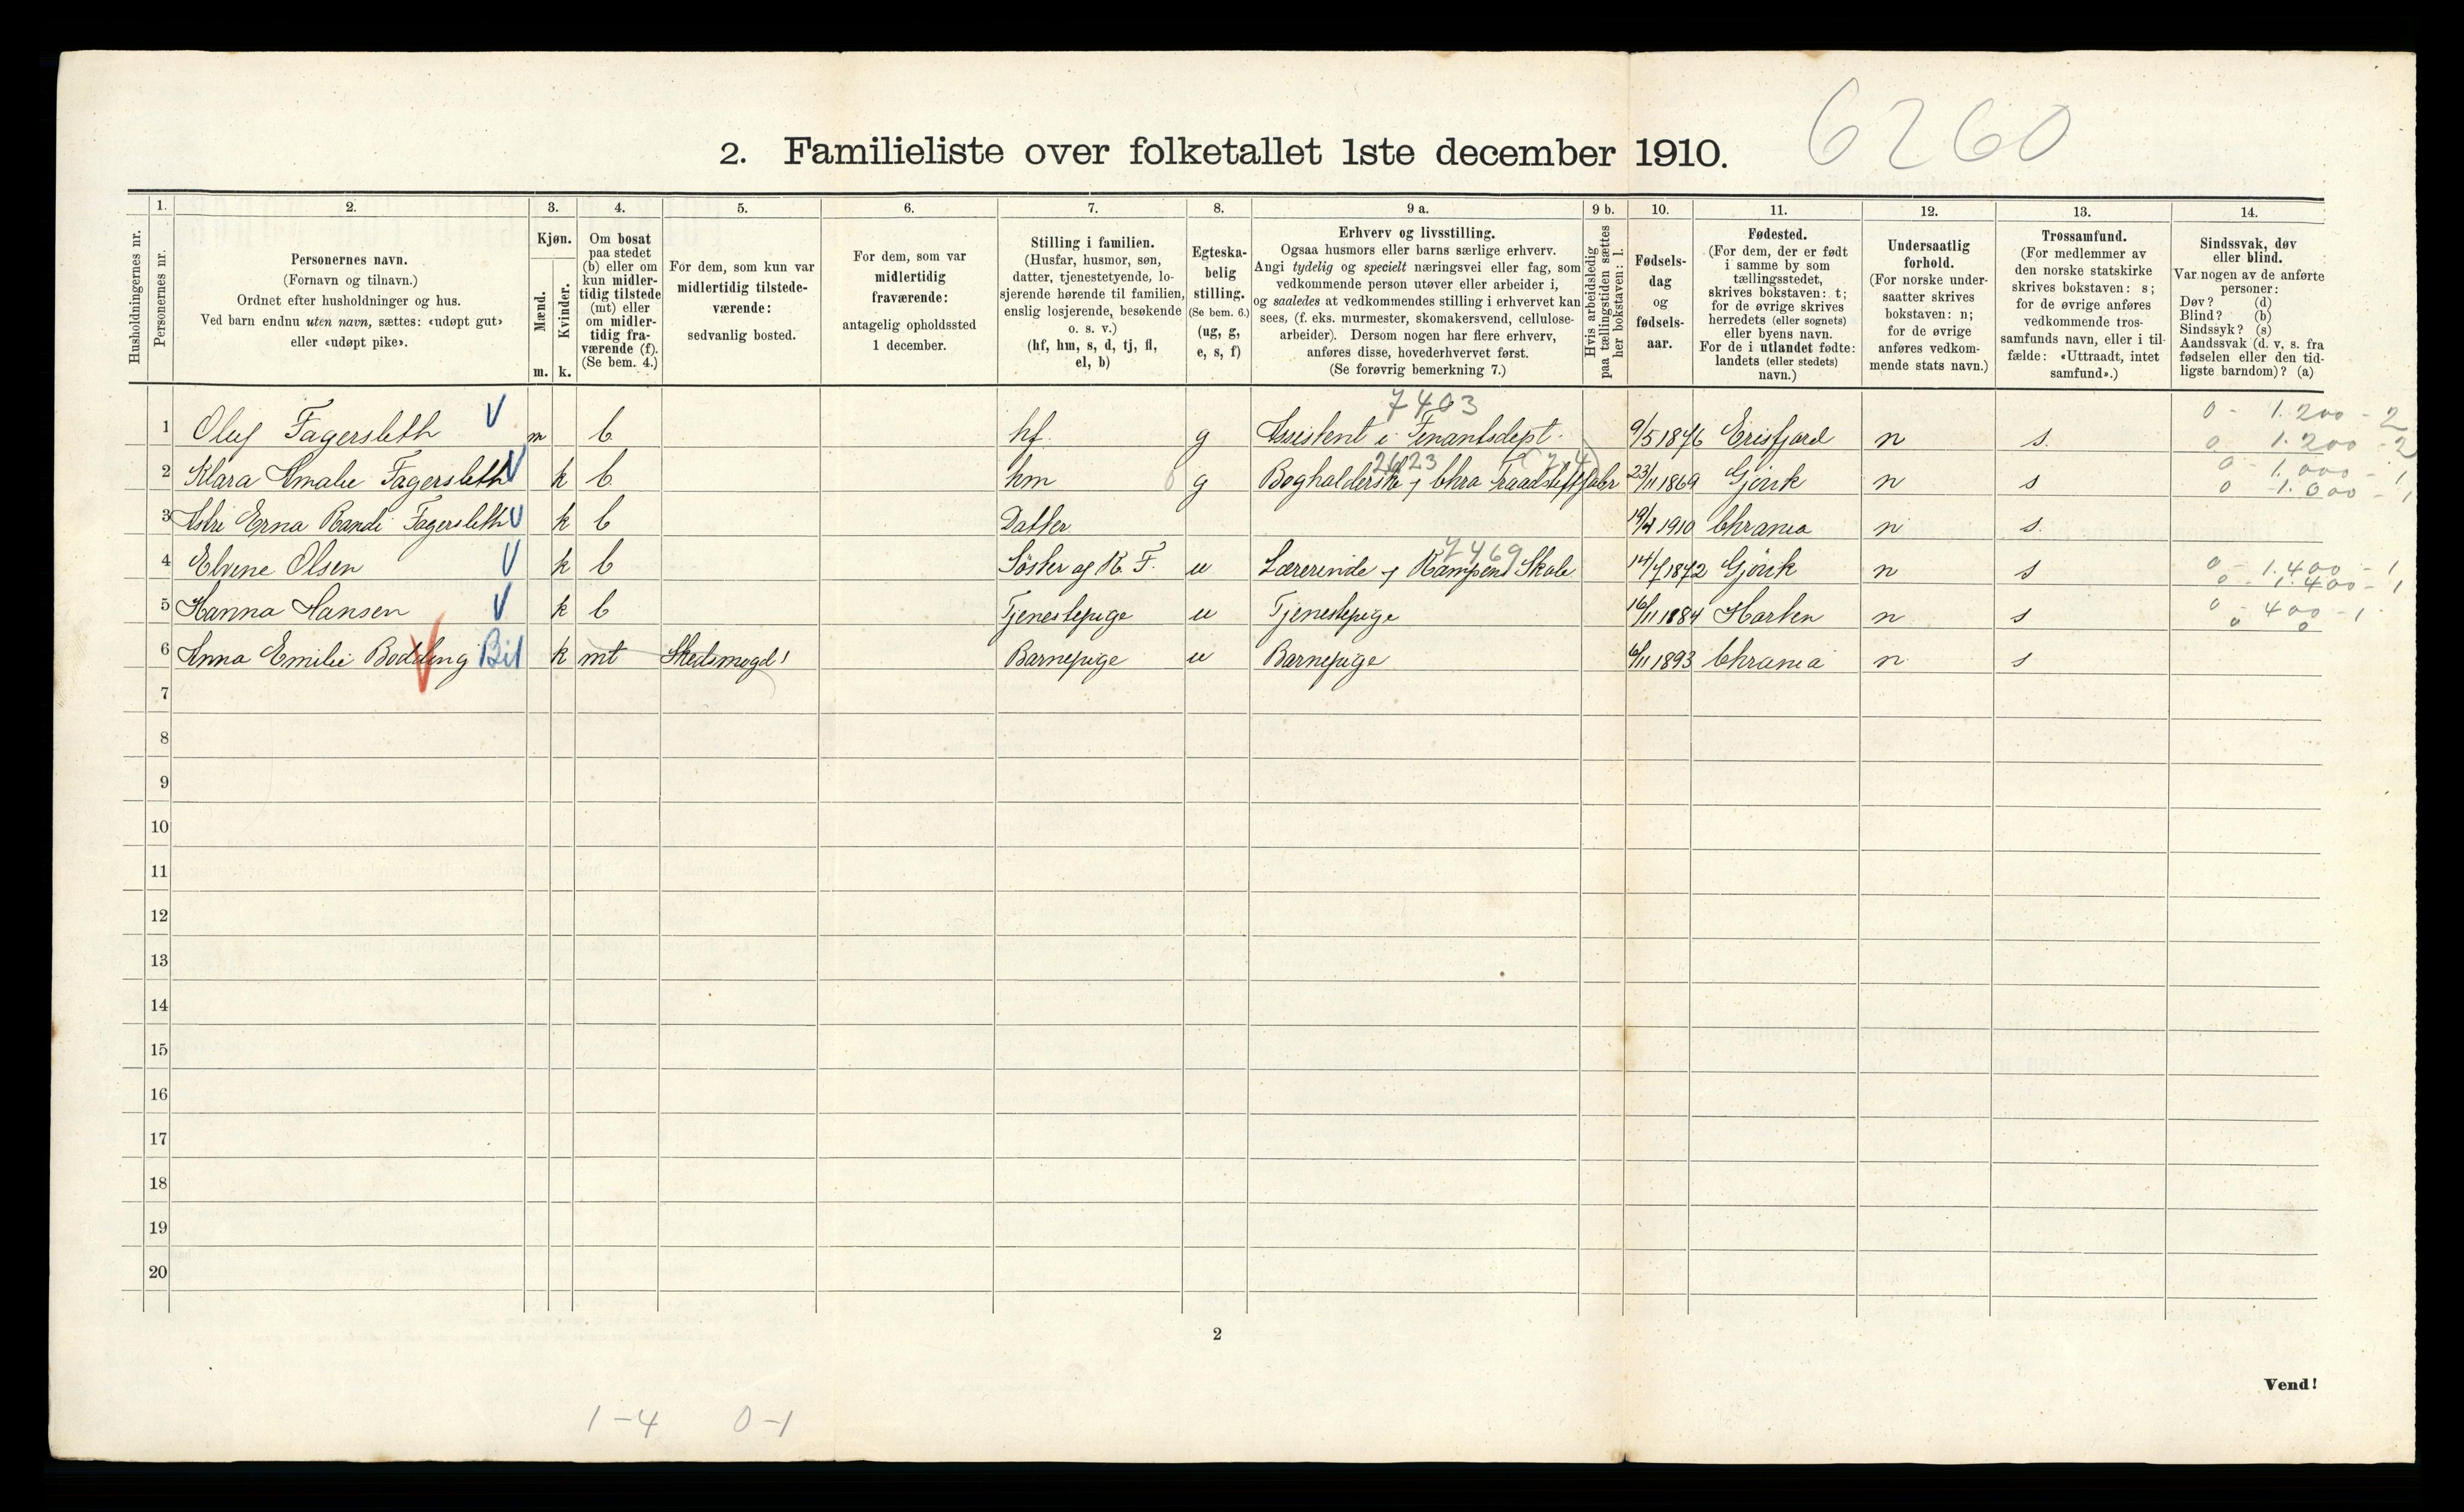 6260
2. Familieliste over folketallet 1ste december 1910.
1. 2. 3. 4. 5. 6. 7. 8. 9 a. 9 b. 10. 11. 12. 13. 14.
Husholdningernes nr.
Personernes nr.
Personernes navn.
(Fornavn og tilnavn.)
Ordnet efter husholdninger og hus.
Ved barn endnu uten navn, sættes: «udøpt gut»
eller «udøpt pike».
Kjøn.
Mænd.
Kvinder.
m. k.
Om bosat
paa stedet
(b) eller om
kun midler-
tidig tilstede
(mt) eller
om midler-
tidig fra-
værende (f).
(Se bem. 4.)
For dem, som kun var
midlertidig tilstede-
værende:
sedvanlig bosted.
For dem, som var
midlertidig
fraværende:
antagelig opholdssted
1 december.
Stilling i familien.
(Husfar, husmor, søn,
datter, tjenestetyende, lo-
sjerende hørende til familien,
enslig losjerende, besøkende
o. s. v.)
(hf, hm, s, d, tj, fl,
el, b)
Egteska-
belig
stilling.
(Se bem. 6.)
(ug, g,
e, s, f)
Erhverv og livsstilling.
Ogsaa husmors eller barns særlige erhverv.
Angi tydelig og specielt næringsvei eller fag, som
vedkommende person utøver eller arbeider i,
og saaledes at vedkommendes stilling i erhvervet kan
sees, (f. eks. murmester, skomakersvend, cellulose-
arbeider). Dersom nogen har flere erhverv,
anføres disse, hovederhvervet først.
(Se forøvrig bemerkning 7.)
Hvis arbeidsledig
paa tællingstiden sættes
her bokstaven: l.
Fødsels-
dag
og
fødsels-
aar.
Fødested.
(For dem, der er født
i samme by som
tællingsstedet,
skrives bokstaven: t;
for de øvrige skrives
herredets (eller sognets)
eller byens navn.
For de i utlandet fødte:
landets (eller stedets)
navn.)
Undersaatlig
forhold.
(For norske under-
saatter skrives
bokstaven: n;
for de øvrige
anføres vedkom-
mende stats navn.)
Trossamfund.
(For medlemmer av
den norske statskirke
skrives bokstaven: s;
for de øvrige anføres
vedkommende tros-
samfunds navn, eller i til-
fælde: «Uttraadt, intet
samfund».)
Sindssvak, døv
eller blind.
Var nogen av de anførte
personer:
Døv? (d)
Blind? (b)
Sindssyk? (s)
Aandssvak (d. v. s. fra
fødselen eller den tid-
ligste barndom)? (a)
7403
0 - 1.200 - 2
1 Oluf Fagersleth V m b hf. g Assistent i Finantsdept. 9/5 1876 Erisfjord n s. 0 1.200 - 2
2623
0 - 1.000 - 1
2 Klara Amalie Fagersleth V k b hm g Bogholderske v/ Chra Traadstiftfabr 23/11 1869 Gjövik n s 0 1.000 - 1
3 Astri Erna Randi Fagersleth V k b Datter 1910 Chrania n s.
7469
0 - 1.400 - 1
4 Elvine Olsen V k b Söster af K. F. u Lærerinde v/ Kampens Skole 14/7 1872 Gjövik n s 0 - 1.400 - 1
5 Hanna Hansen V k b Tjenestepige u Tjenestepige 16/11 1884 n s 0 - 400 - 1
0 0
6 Anna Emilie Bodding V Bil k mt Skedsmogd! Barnepige u Barnepige 6/11 1893 Chrania n s
7
8
9
10
11
12
13
14
15
16
17
18
19
20
2
Vend!
1-4 0-1